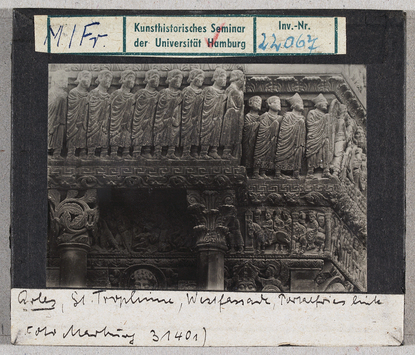 M/Fr.
Kunsthistorisches Seminar
der Universität Hamburg
Inv.-Nr.
22067
Arles, St. Trophime, Westfassade, Portalfries links
Foto Marburg 31401)